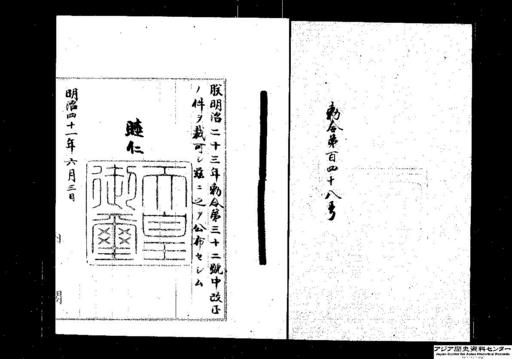 勅令第百四十八号
朕明治二十三年勅令第三十二號中改正
ノ件ヲ裁可シ茲ニ之ヲ公布セシム
睦仁
天皇
御璽
明治四十一年六月三日
アジア歴史資料センター
Japan Center for Asian Historical Records